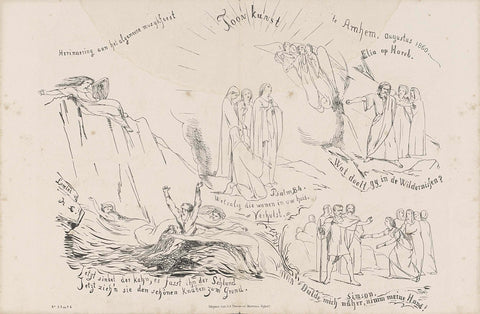 Herinnering aan het algemeen muzijkfeest
Toonkunst
te Arnhem, augustus 1860.
Elia op Horeb.
Wat doelt gy in de Wildernissen?
Psalm 84.
Welzalig die wonen in uw huis.
Verhulst.
Jetzt sinket der Kahn, es fasst ihn der Schlund
Jetzt ziehn sie den schönen Knaben zum Grund.
Simson.
mich näher, nimm meine Hand